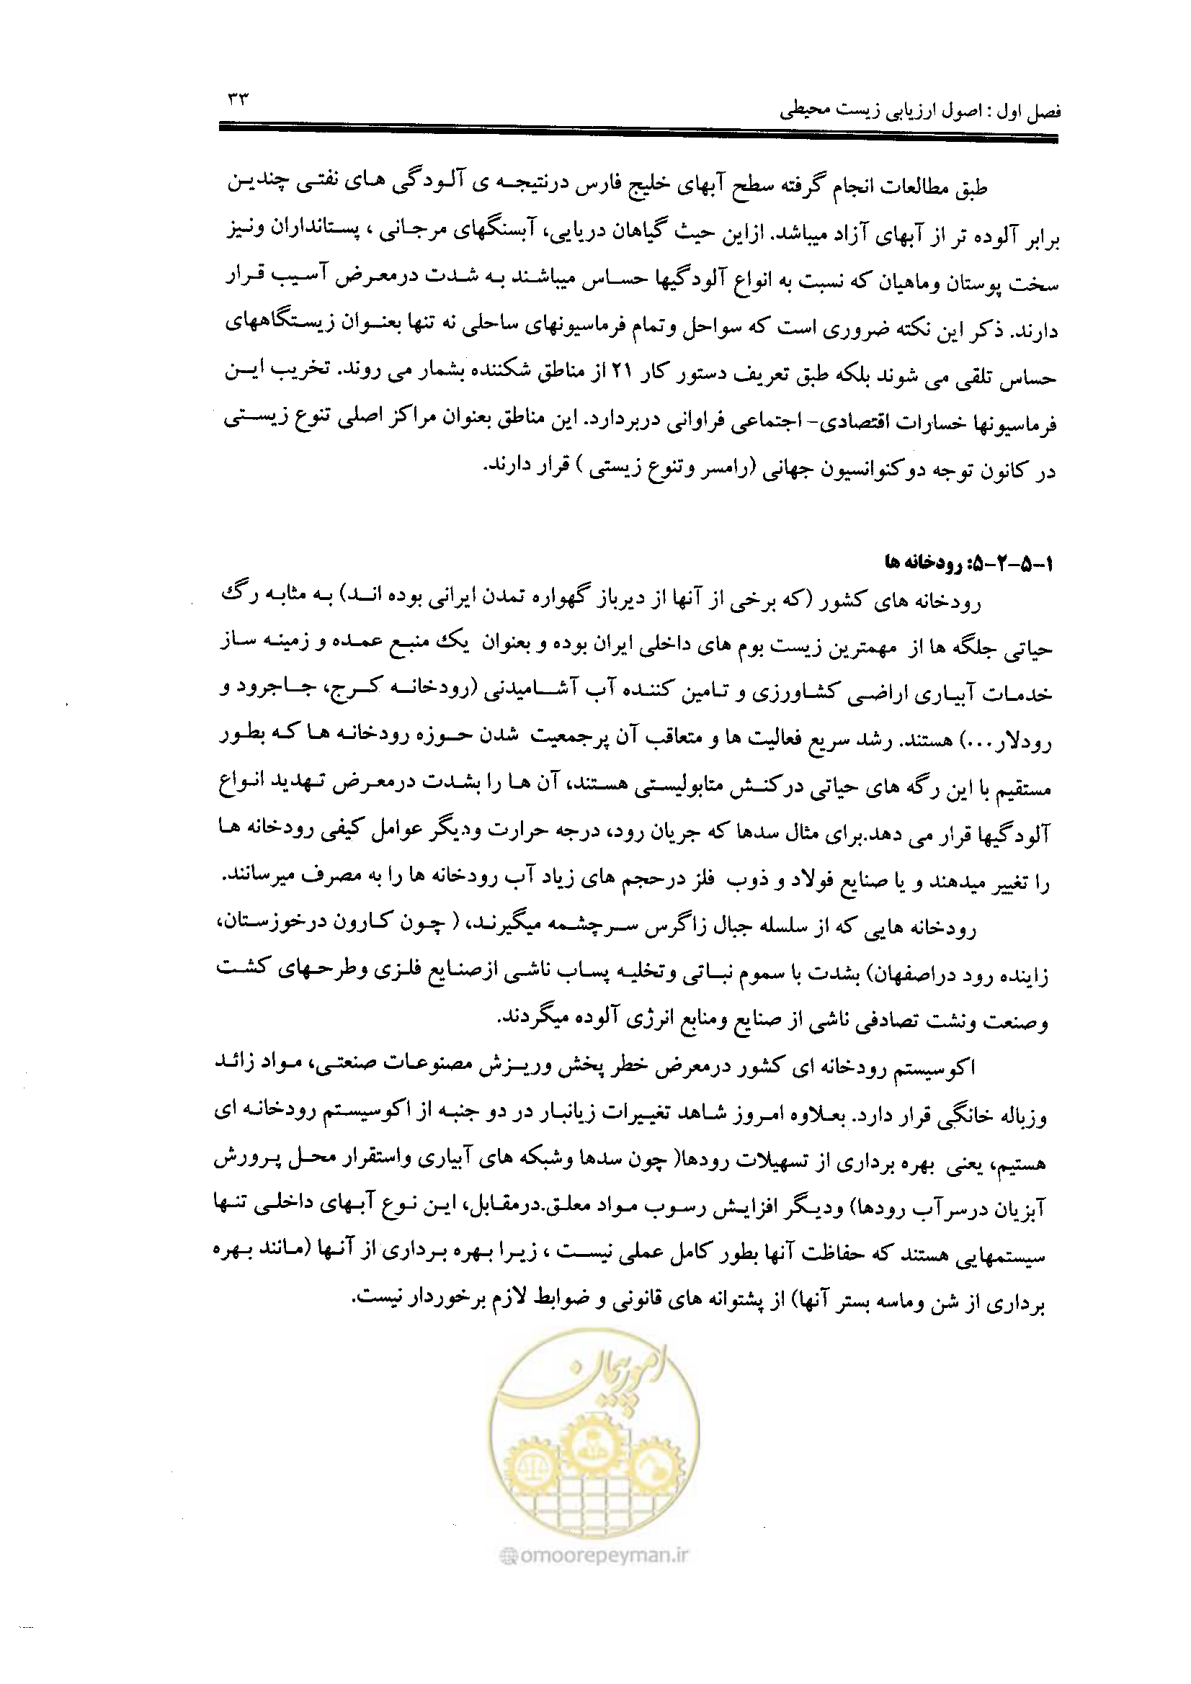 فصل اول : اصول ارزیابی زیست محیطی
۳۳
طبق مطالعات انجام گرفته سطح آبهای خلیج فارس درنتیجه ی آلودگی های نفتی چندین
برابر آلوده تر از آبهای آزاد میباشد. ازاین حیث گیاهان دریایی، آبسنگهای مرجانی ، پستانداران ونیز
سخت پوستان وماهیان که نسبت به انواع آلودگیها حساس میباشند به شدت درمعرض آسیب قرار
دارند. ذکر این نکته ضروری است که سواحل وتمام فرماسیونهای ساحلی نه تنها بعنوان زیستگاههای
حساس تلقی می شوند بلکه طبق تعریف دستور کار ۲۱ از مناطق شکننده بشمار می روند. تخریب این
فرماسیونها خسارات اقتصادی- اجتماعی فراوانی دربردارد. این مناطق بعنوان مراکز اصلی تنوع زیستی
در کانون توجه دوکنوانسیون جهانی (رامسر وتنوع زیستی ) قرار دارند.
۱-۵-۲-۵: رودخانه ها
رودخانه های کشور (که برخی از آنها از دیرباز گهواره تمدن ایرانی بوده اند) به مثابه رگ
حیاتی جلگه ها از مهمترین زیست بوم های داخلی ایران بوده و بعنوان یک منبع عمده و زمینه ساز
خدمات آبیاری اراضی کشاورزی و تامین کننده آب آشامیدنی (رودخانه کرج، جاجرود و
رودلار...) هستند. رشد سریع فعالیت ها و متعاقب آن پرجمعیت شدن حوزه رودخانه ها که بطور
مستقیم با این رگه های حیاتی درکنش متابولیستی هستند، آن ها را بشدت درمعرض تهدید انواع
آلودگیها قرار می دهد.برای مثال سدها که جریان رود، درجه حرارت ودیگر عوامل کیفی رودخانه ها
را تغییر میدهند و یا صنایع فولاد و ذوب فلز درحجم های زیاد آب رودخانه ها را به مصرف میرسانند.
رودخانه هایی که از سلسله جبال زاگرس سرچشمه میگیرند، ( چون کارون درخوزستان،
زاینده رود دراصفهان) بشدت با سموم نباتی وتخلیه پساب ناشی ازصنایع فلزی وطرحهای کشت
وصنعت ونشت تصادفی ناشی از صنایع ومنابع انرژی آلوده میگردند.
اکوسیستم رودخانه ای کشور درمعرض خطر پخش وریزش مصنوعات صنعتی، مواد زائد
وزباله خانگی قرار دارد. بعلاوه امروز شاهد تغییرات زیانبار در دو جنبه از اکوسیستم رودخانه ای
هستیم، یعنی بهره برداری از تسهیلات رودها( چون سدها وشبکه های آبیاری واستقرار محل پرورش
آبزیان درسرآب رودها) ودیگر افزایش رسوب مواد معلق.درمقابل، این نوع آبهای داخلی تنها
سیستمهایی هستند که حفاظت آنها بطور کامل عملی نیست ، زیرا بهره برداری از آنها (مانند بهره
برداری از شن وماسه بستر آنها) از پشتوانه های قانونی و ضوابط لازم برخوردار نیست.
امورپیمان
@omoorepeyman.ir